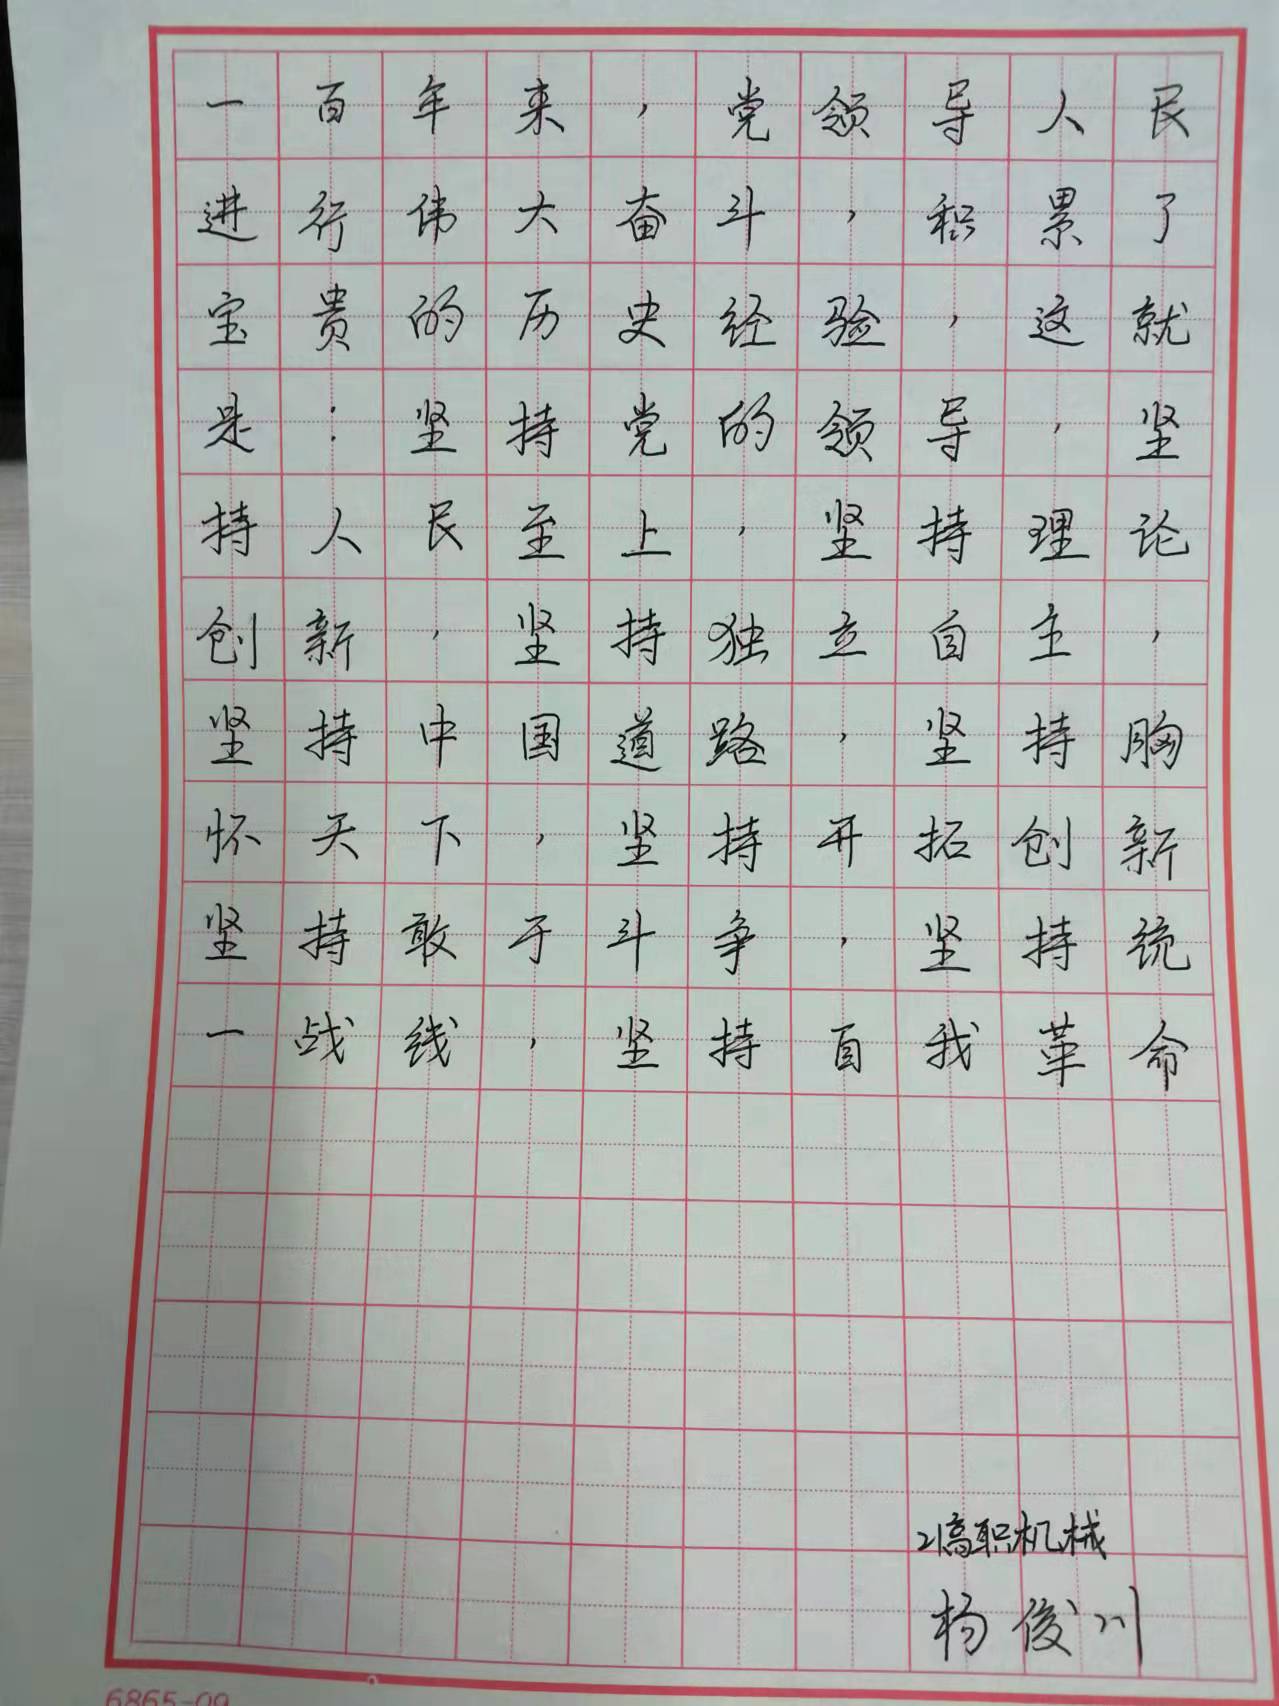 一百年来，党领导人民
进行伟大奋斗，积累了
宝贵的历史经验，这就
是：坚持党的领导，坚
持人民至上，坚持理论
创新，坚持独立自主，
坚持中国道路，坚持胸
怀天下，坚持开拓创新
坚持敢于斗争，坚持统
一战线，坚持自我革命
21高职机械
杨俊川
6865-09